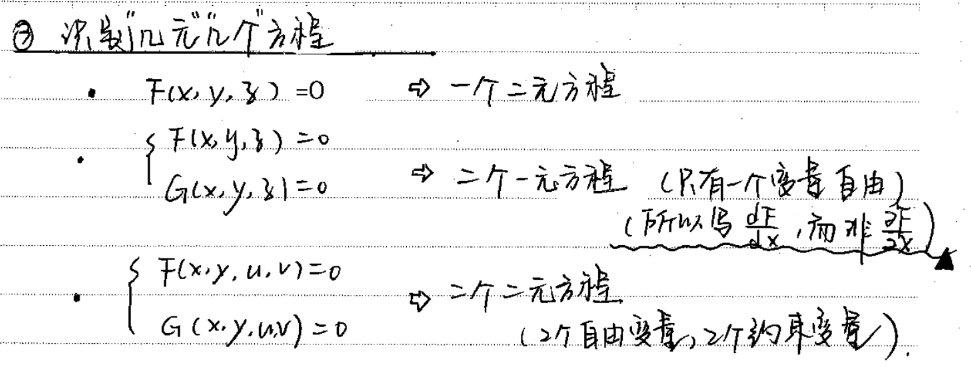 ② 识别"几元""几个"方程
· F(x,y,z)=0 ⇨ 一个二元方程
· { F(x,y,z)=0
G(x,y,z)=0 ⇨ 二个一元方程 (只有一个变量自由)
(所以写 dF/dx ,而非 ∂F/∂x)
· { F(x,y,u,v)=0
G(x,y,u,v)=0 ⇨ 二个二元方程
(2个自由变量,2个约束变量).